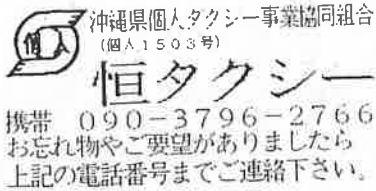 個人
沖縄県個人タクシー事業協同組合
(個人1503号)
恒タクシー
携帯 090-3796-2766
お忘れ物やご要望がありましたら
上記の電話番号までご連絡下さい。